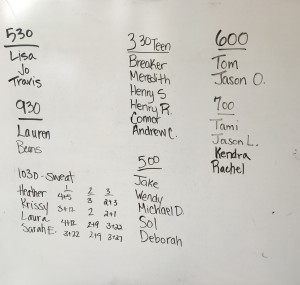 530
Lisa
Jo
Travis
930
Lauren
Beans
1030 - Sweat
1 2 3
Heather 4+5 3 2+3
Krissy 3+12 2 2+1
Laura 4+12 2+9 3+22
Sarah E. 3+22 2+9 3+27
3 30 Teen
Breaker
Meredith
Henry S
Henry R.
Connor
Andrew C.
500
Jake
Wendy
Michael D.
Sol
Deborah
600
Tom
Jason O.
700
Tami
Jason L.
Kendra
Rachel